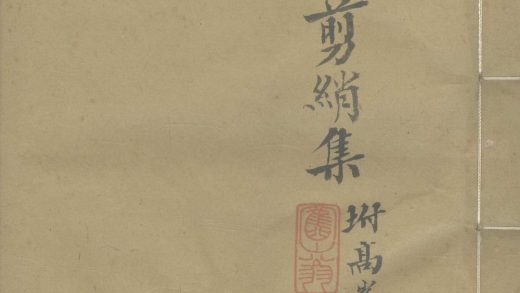 剪綃集
坿高